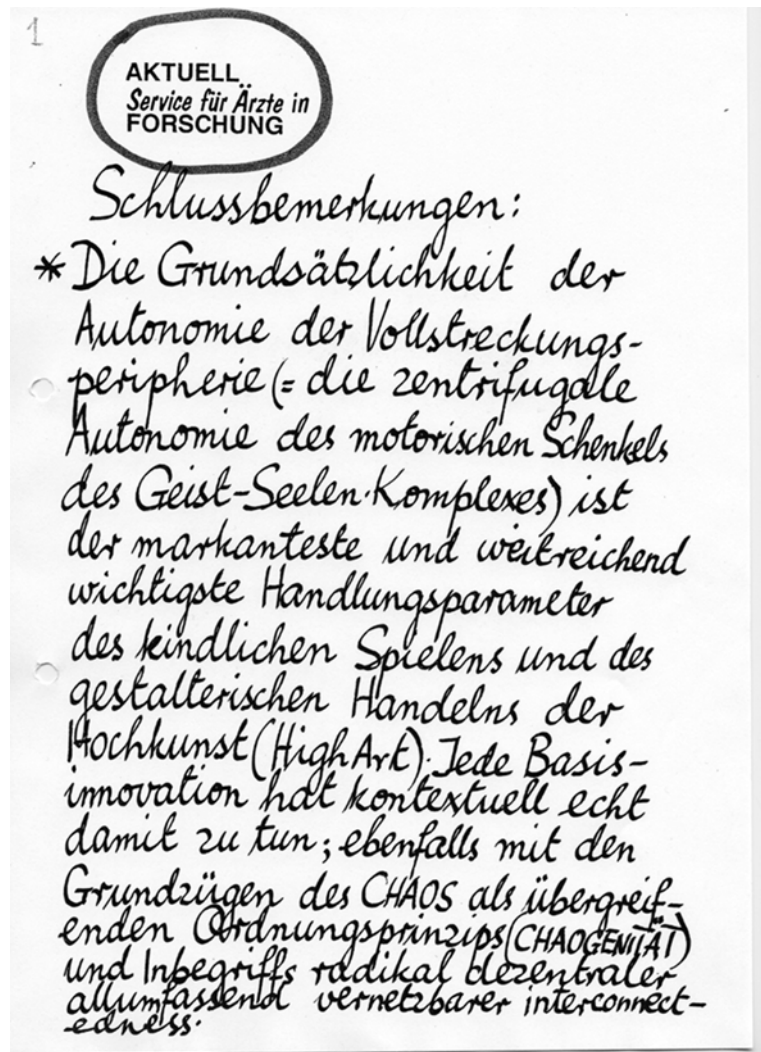 1
AKTUELL
Service für Ärzte in
FORSCHUNG
Schlussbemerkungen:
* Die Grundsätzlichkeit der
Autonomie der Vollstreckungs-
peripherie (= die zentrifugale
Autonomie des motorischen Schenkels
des Geist-Seelen-Komplexes) ist
der markanteste und weitreichend
wichtigste Handlungsparameter
des kindlichen Spielens und des
gestalterischen Handelns der
Hochkunst (High Art). Jede Basis-
innovation hat kontextuell echt
damit zu tun; ebenfalls mit den
Grundzügen des CHAOS als übergreif-
enden Ordnungsprinzips (CHAOGENITÄT)
und Inbegriffs radikal dezentraler
allumfassend vernetzbarer interconnect-
edness.